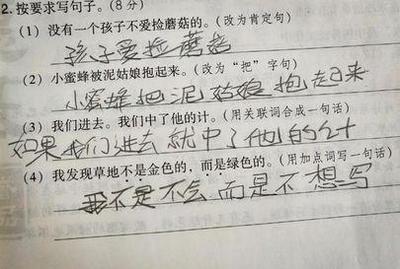 2.按要求写句子。(8分)
(1) 没有一个孩子不爱捡蘑菇的。(改为肯定句)
孩子爱捡蘑菇
(2) 小蜜蜂被泥姑娘抱起来。(改为“把”字句)
小蜜蜂把泥姑娘抱起来
(3) 我们进去。我们中了他的计。(用关联词合成一句话)
如果我们进去就中了他的计
(4) 我发现草地不是金色的，而是绿色的。(用加点词写一句话)
我不是不会而是不想写